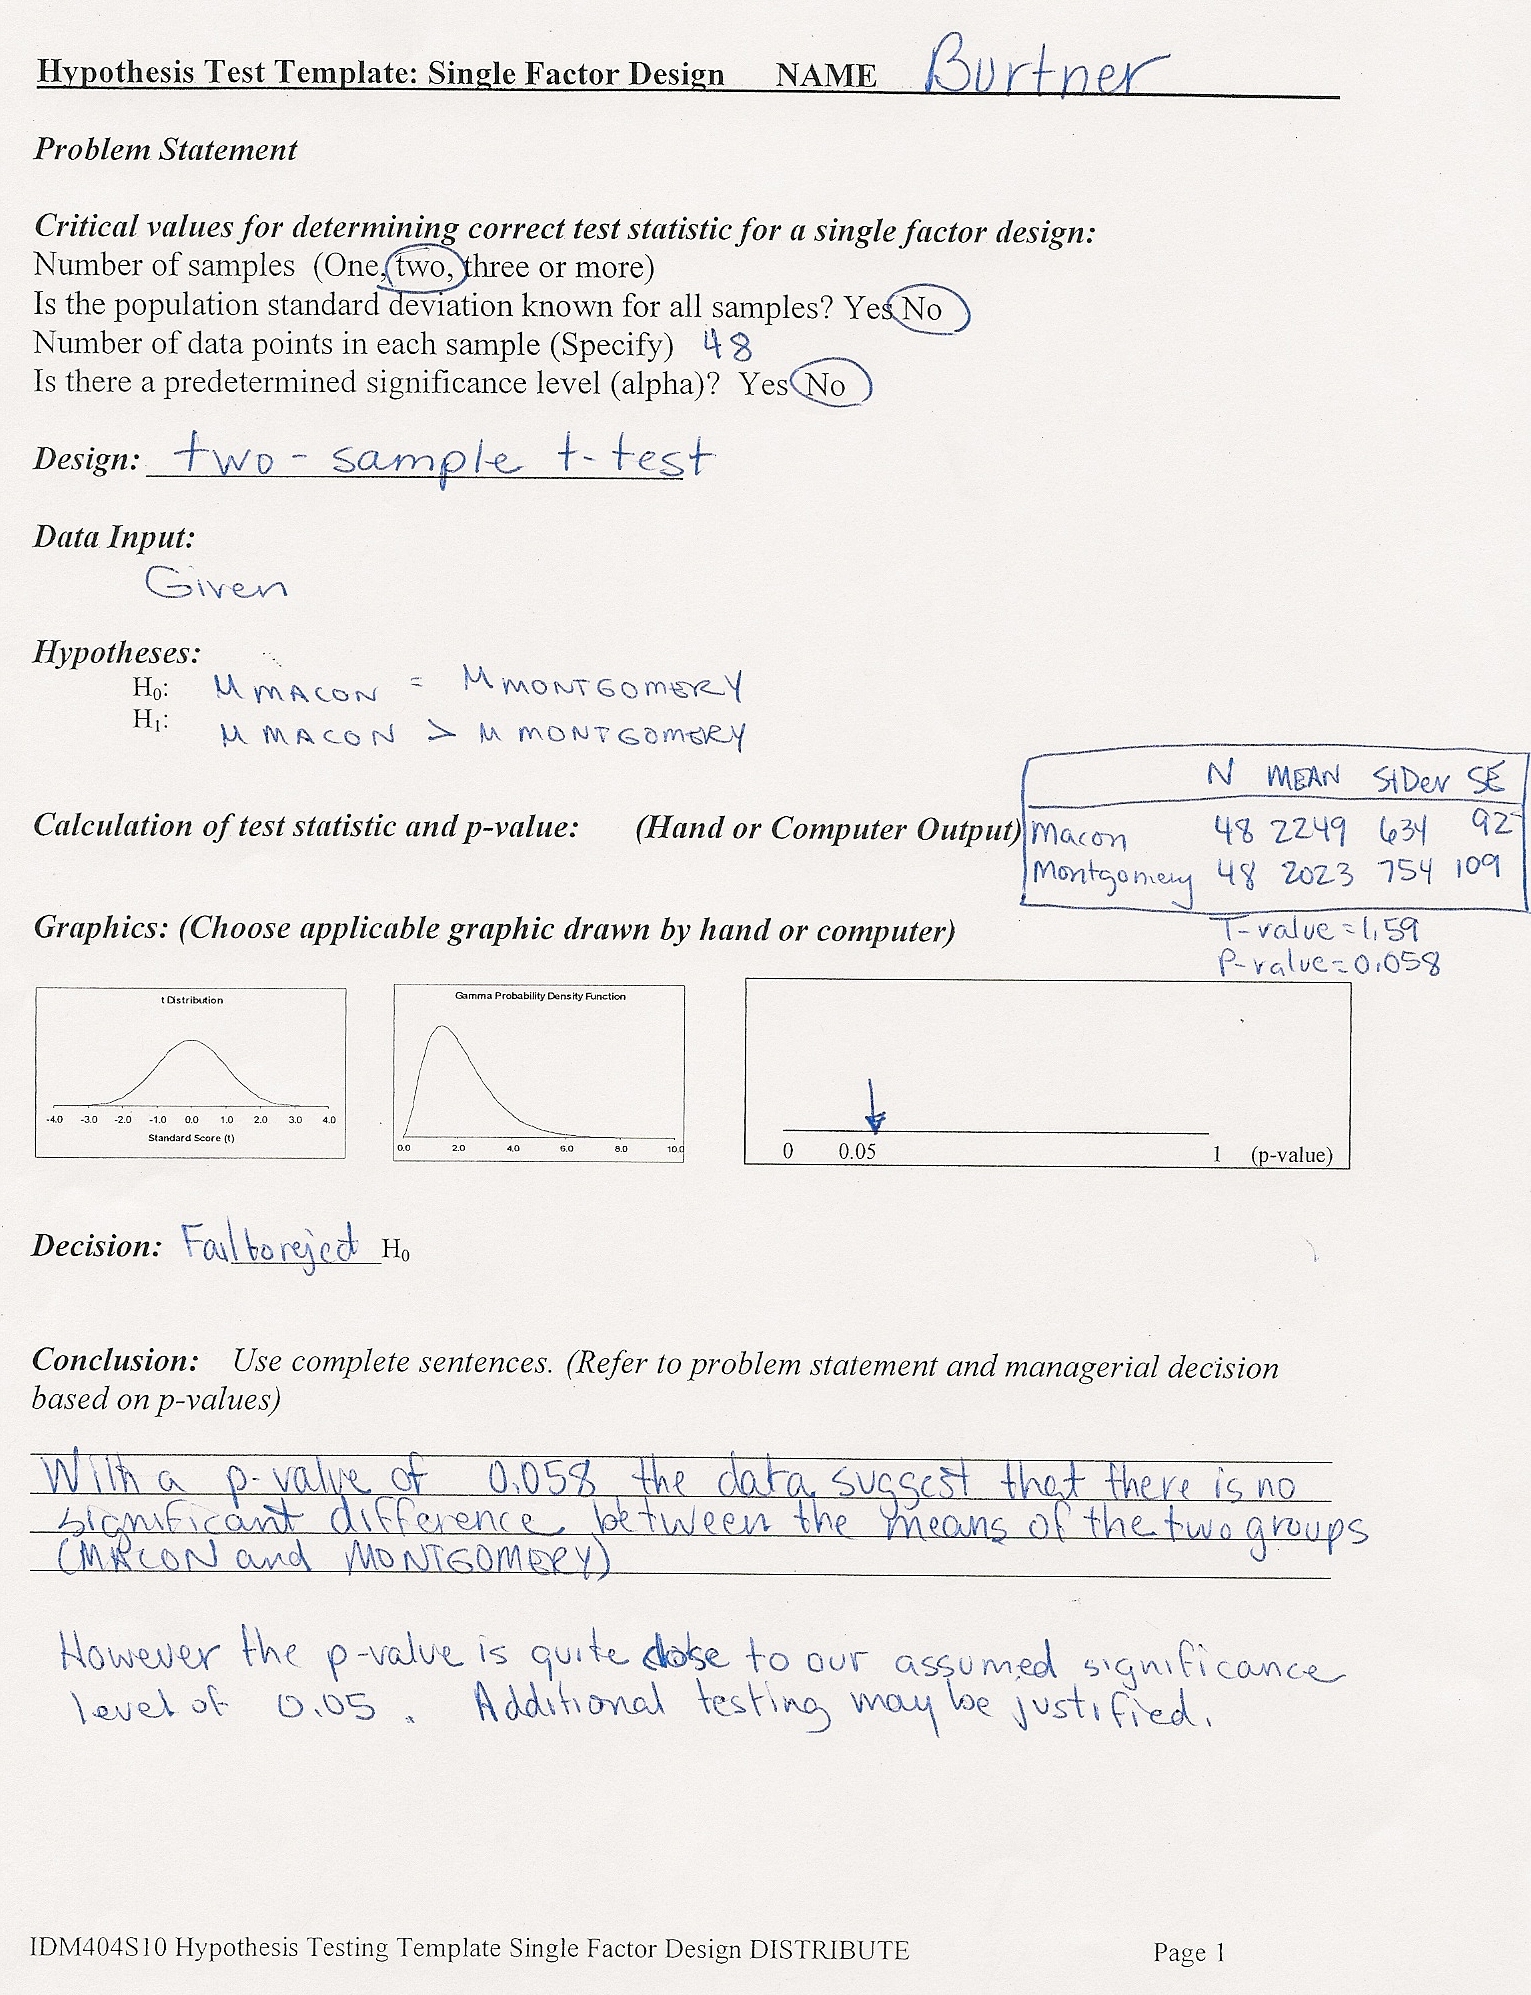 Hypothesis Test Template: Single Factor Design NAME Burtner
Problem Statement
Critical values for determining correct test statistic for a single factor design:
Number of samples (One, two, three or more)
Is the population standard deviation known for all samples? Yes No
Number of data points in each sample (Specify) 48
Is there a predetermined significance level (alpha)? Yes No
Design: two-sample t-test
Data Input:
Given
Hypotheses:
H₀: μ MACON = μ MONTGOMERY
H₁: μ MACON > μ MONTGOMERY
N MEAN StDev SE
Calculation of test statistic and p-value: (Hand or Computer Output)
Macon 48 2249 634 92
Montgomery 48 2023 754 109
Graphics: (Choose applicable graphic drawn by hand or computer)
T-value = 1.59
P-value = 0.058
t Distribution
-4.0 -3.0 -2.0 -1.0 0.0 1.0 2.0 3.0 4.0
Standard Score (t)
Gamma Probability Density Function
0.0 2.0 4.0 6.0 8.0 10.0
0 0.05 1 (p-value)
Decision: Fail to reject H₀
Conclusion: Use complete sentences. (Refer to problem statement and managerial decision
based on p-values)
With a p-value of 0.058 the data suggest that there is no
significant difference between the means of the two groups
(MACON and MONTGOMERY)
However the p-value is quite close to our assumed significance
level of 0.05. Additional testing may be justified.
IDM404S10 Hypothesis Testing Template Single Factor Design DISTRIBUTE Page 1